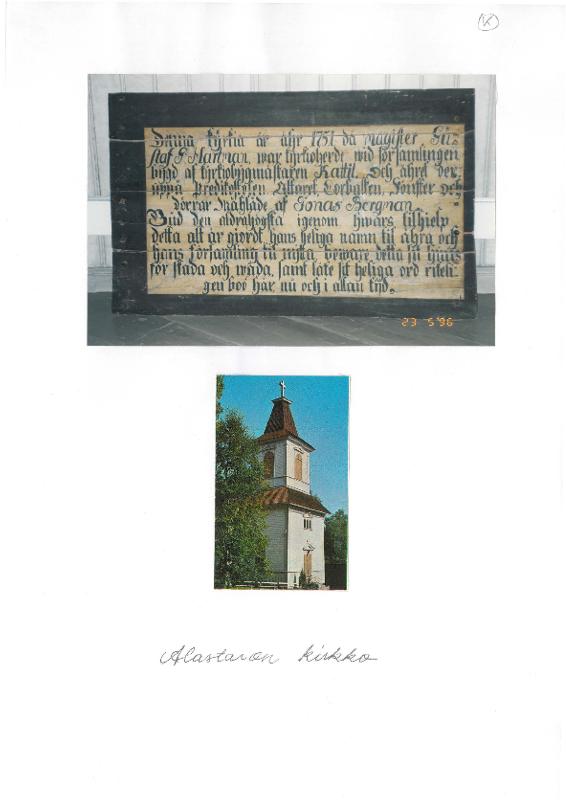 K
Denna kyrkia är åhr 1751 då Magister Gu-
staf G. Hartman, war kyrkioherde wid försambligen
bygd af kyrkiobygmästaren Kattil. Och åhret der
uppå Predikstolen, Altaret, Fönster och
dörrar målade af Jonas Bergman.
Gud den aldrahögsta igenom hwars tilhielp
detta alt är giordt, hans heliga namn til ähra och
hans församling til nytta, beware detta sit huus
för skada och wåda, samt late sit heliga ord rikeli-
gen boo här nu och i allan tijd.
23 5'96
Alastaron kirkko